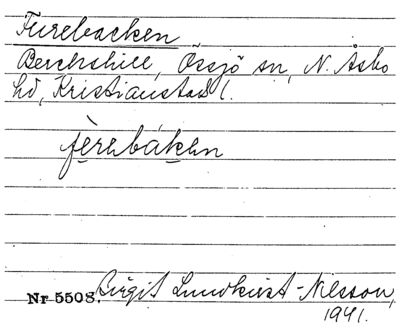 Furebacken
Berchshill, Össjö sn, N. Åsbo
hd, Kristianstad l.
fèrebáken
Nr 5508. Birgit Lundkvist-Nilsson,
1941.